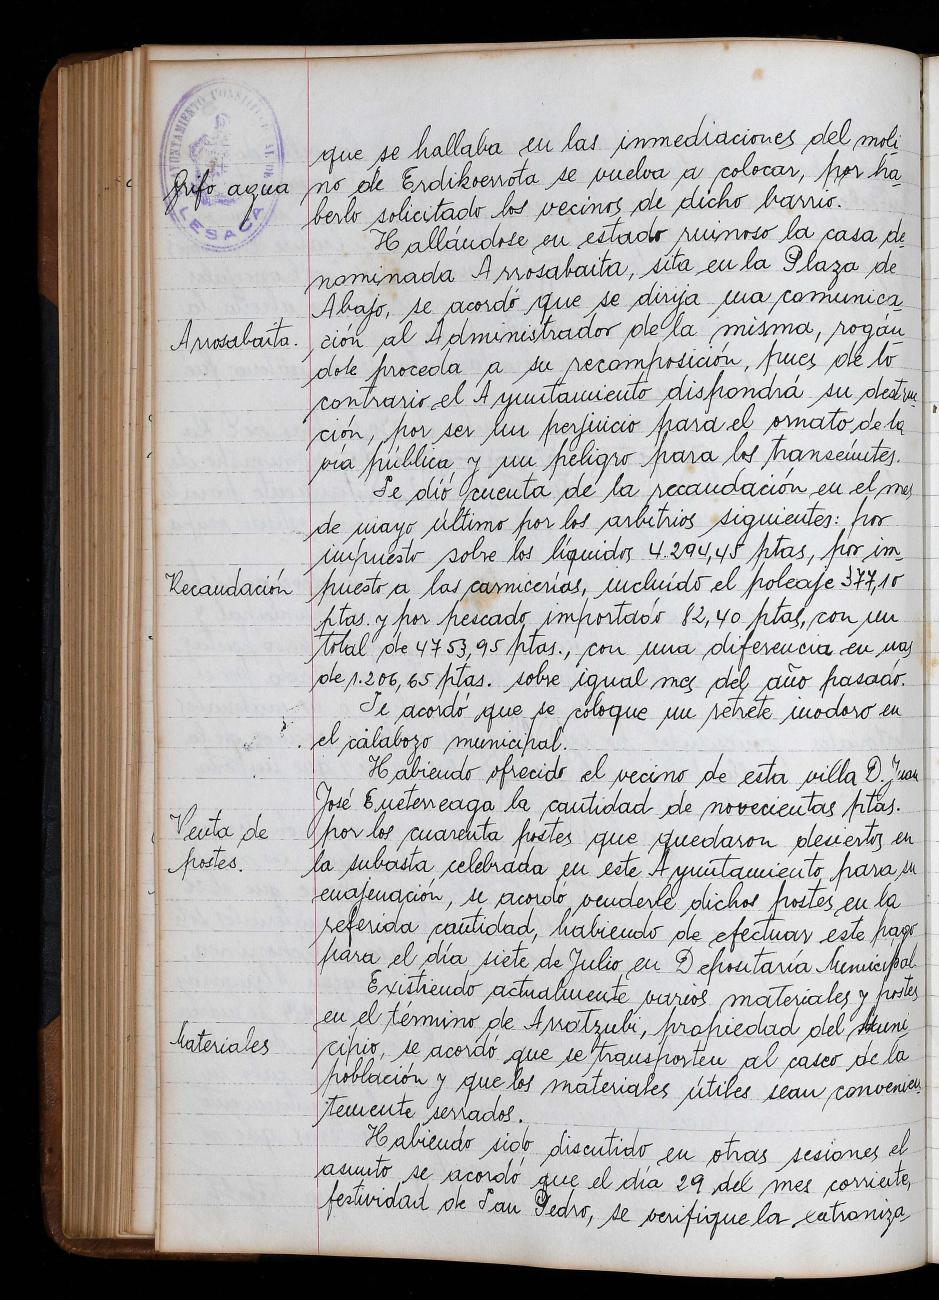 AYUNTAMIENTO CONSTITUCIONAL DE
LESACA
que se hallaba en las inmediaciones del moli
Grifo agua
no de Erdikoerrota se vuelva a colocar, por ha-
berlo solicitado los vecinos de dicho barrio.
Hallándose en estado ruinoso la casa de-
nominada Arrosabaita, sita en la Plaza de
Abajo, se acordó que se dirija una comunica-
Arrosabaita.
ción al Administrador de la misma, rogán
dole proceda a su recomposición, pues de lo
contrario el Ayuntamiento dispondrá su destru-
ción, por ser un perjuicio para el ornato de la
vía pública y un peligro para los transeúntes.
Se dió cuenta de la recaudación en el mes
de mayo último por los arbitrios siguientes: por
impuesto sobre los líquidos 4.294,45 ptas, por im-
Recaudación
puesto a las carnicerías, incluido el poleaje 377,10
ptas. y por pescado importado 82,40 ptas, con un
total de 4753,95 ptas., con una diferencia en mas
de 1.206,65 ptas. sobre igual mes del año pasado.
Se acordó que se coloque un retrete inodoro en
el calabozo municipal.
Habiendo ofrecido el vecino de esta villa D. Juan
José Eneterreaga la cantidad de novecientas ptas.
Venta de
postes.
por los cuarenta postes que quedaron desiertos en
la subasta celebrada en este Ayuntamiento para su
enajenación, se acordó venderle dichos postes en la
referida cantidad, habiendo de efectuar este pago
para el día siete de Julio en Depositaría Municipal
Existiendo actualmente varios materiales y postes
en el término de Arratzubi, propiedad del Muni
Materiales
cipio, se acordó que se transporten al casco de la
población y que los materiales útiles sean convenien-
temente serrados.
Habiendo sido discutido en otras sesiones el
asunto se acordó que el día 29 del mes corriente,
festividad de San Pedro, se verifique la entroniza-